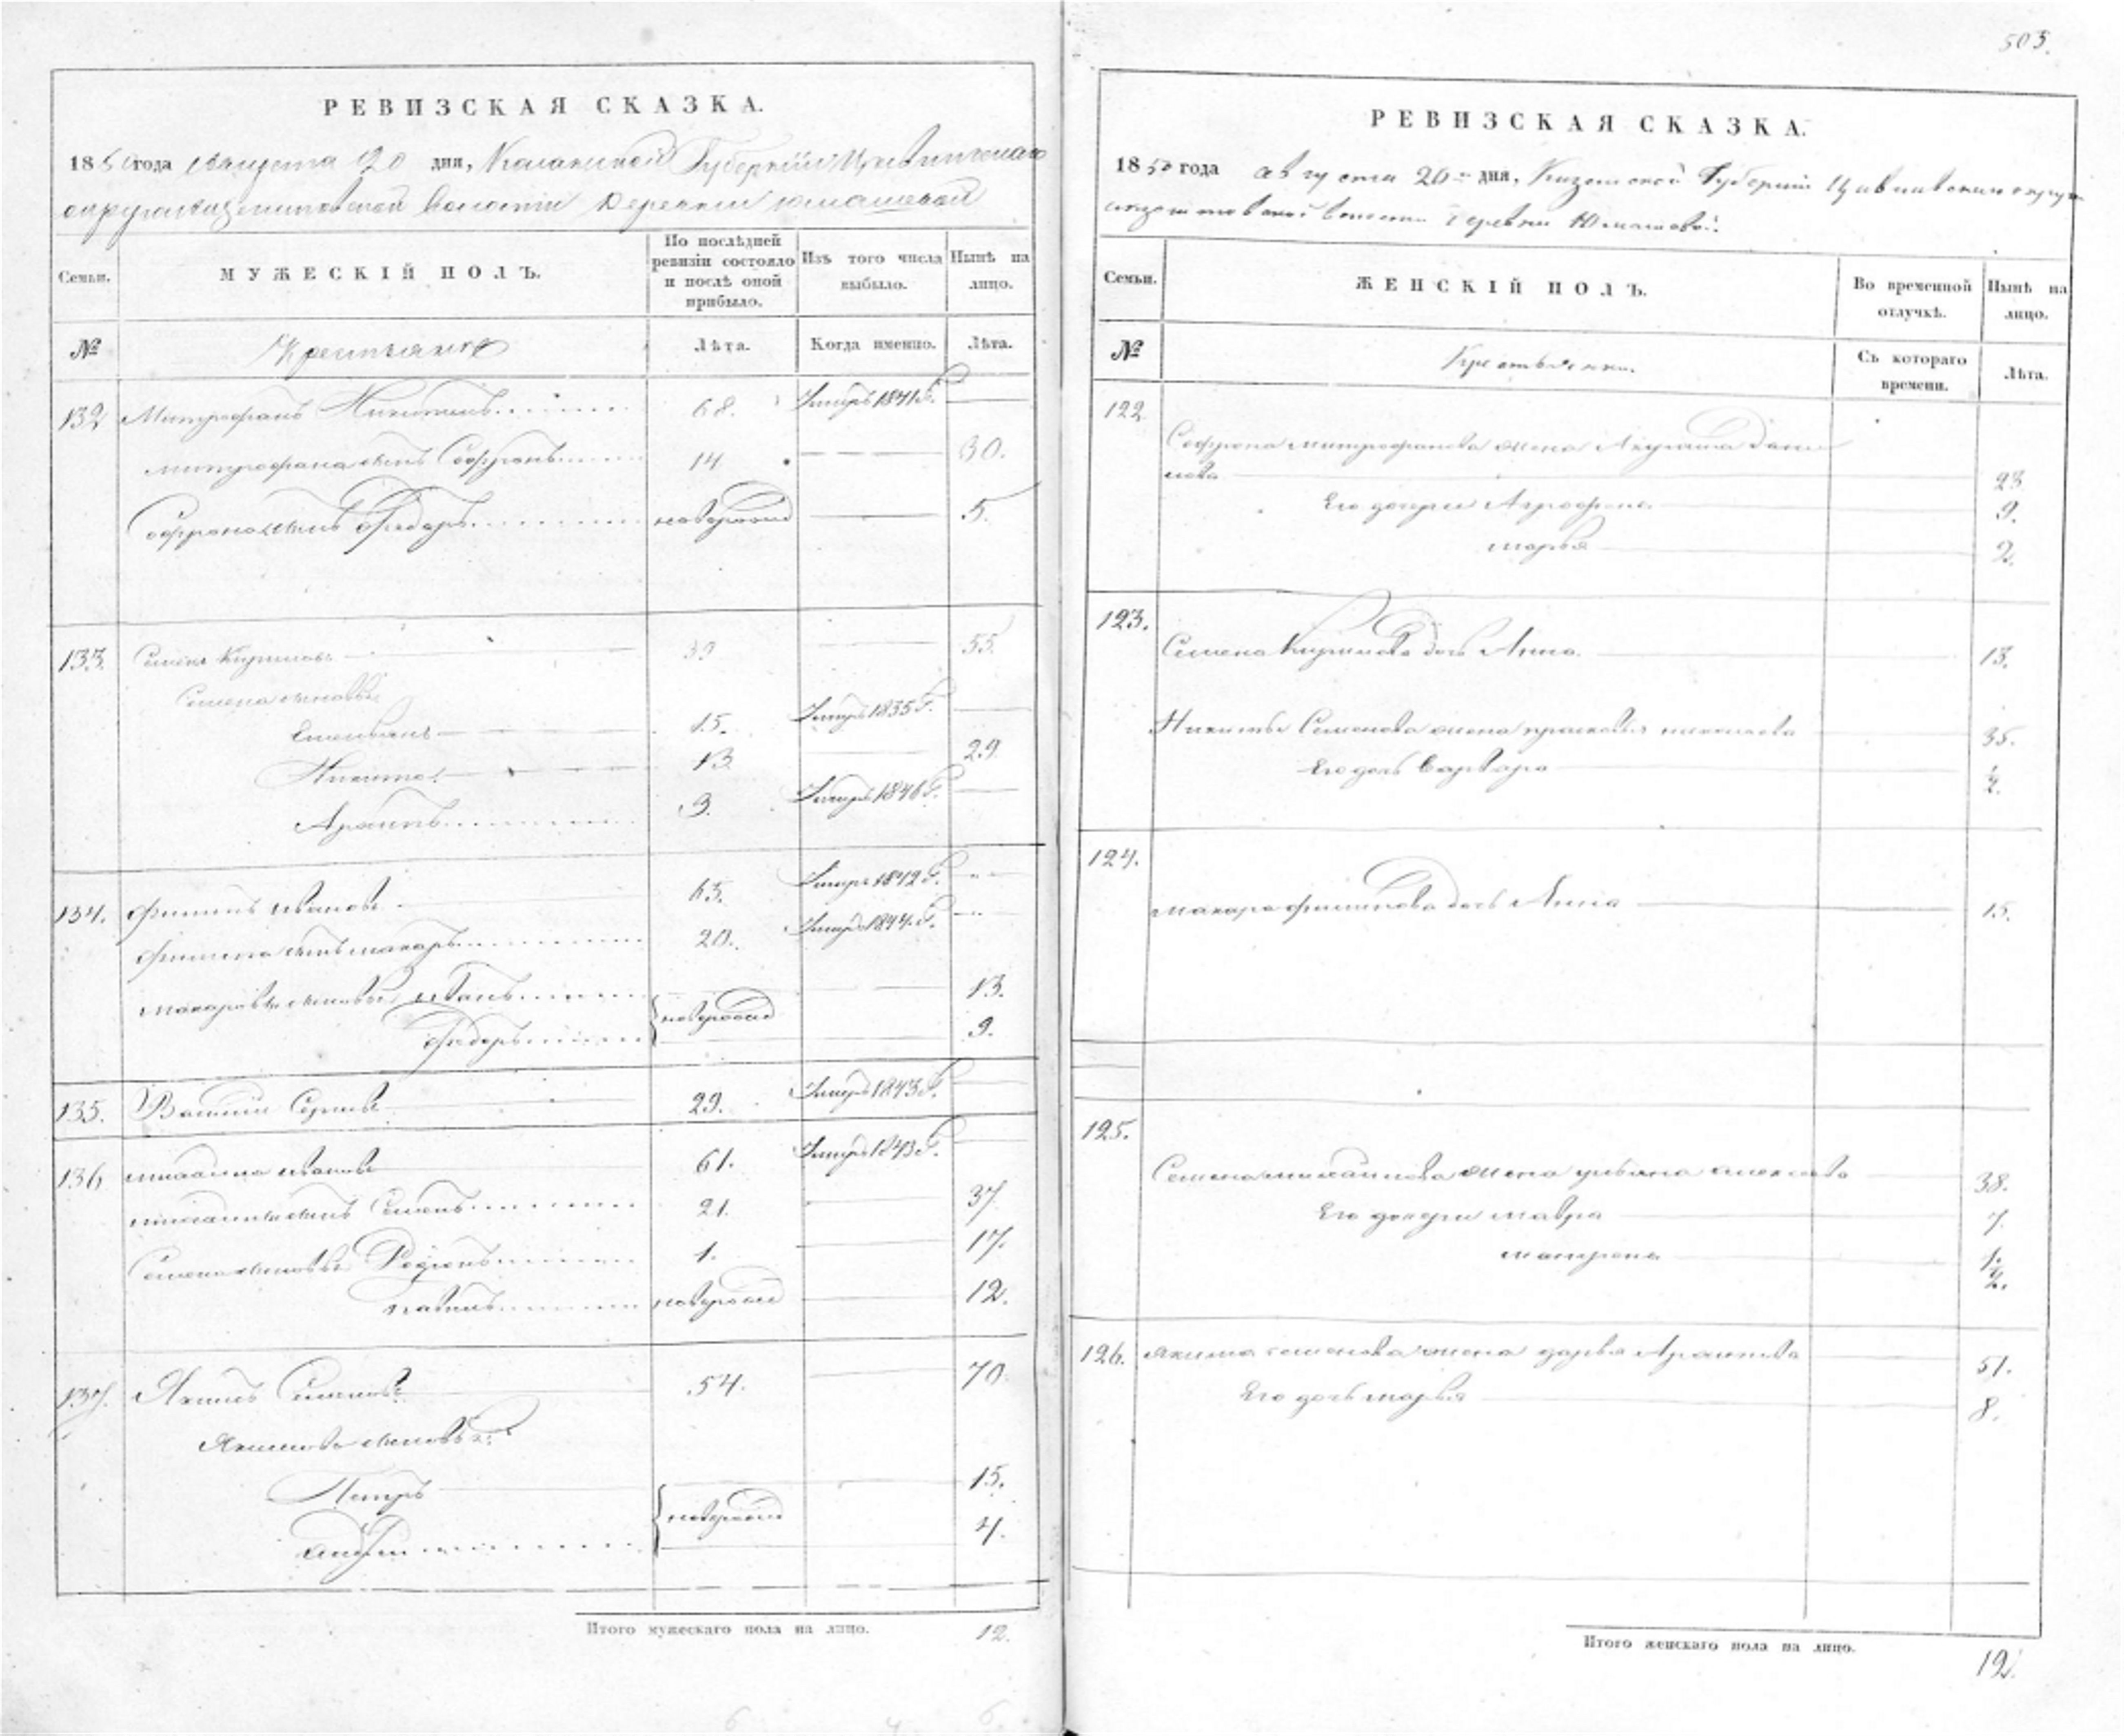 503.
РЕВИЗСКАЯ СКАЗКА.
1850 года августа 20 дня, Казанской Губернiи Цивильскаго
округа волости деревни Юмашевой
Семьи.
МУЖЕСКІЙ ПОЛЪ.
По послѣдней ревизіи состояло и послѣ оной прибыло.
Изъ того числа выбыло.
Нынѣ на лицо.
№
Крестьяне
Лѣта.
Когда именно.
Лѣта.
132 Митрофанъ Никитинъ 68. Умеръ 1841 г.
Митрофана сынъ Софронъ 14 30.
Софрона сынъ Федоръ новорожд 5.
133. Семенъ Кириловъ 39 55.
Семена сыновья
Емельянъ 15. Умеръ 1835 г.
Никита 13 29.
Архипъ 3. Умеръ 1846 г.
134. Филипъ Ивановъ 65. Умеръ 1842 г.
Филипа сынъ Макаръ 20. Умеръ 1844 г.
Макаровы сыновья Иванъ 13.
новорожд
Федоръ 9.
135. Василiй Сергѣевъ 29. Умеръ 1843 г.
136 Михаила Ивановъ 61. Умеръ 1843 г.
Михаила сынъ Семенъ 21. 37
Семена сыновья Родiонъ 1. 17.
Павелъ новорожд 12.
137. Якимъ Семеновъ 54. 70.
Якимовы сыновья:
Петръ 15.
новорожд
Андрей 4.
Итого мужескаго пола на лицо. 12.
РЕВИЗСКАЯ СКАЗКА.
1850 года августа 20 дня, Казанской Губернiи Цивильскаго округа
волости деревни Юмашевой.
Семьи.
ЖЕНСКІЙ ПОЛЪ.
Во временной отлучкѣ.
Нынѣ на лицо.
№
Крестьянки.
Съ котораго времени.
Лѣта.
122.
Софрона Митрофанова жена Акулина Дани
лова 23
Его дочери Агрофена 9.
Марья 2.
123.
Семена Кирилова дочь Анна 13.
Никиты Семенова жена Прасковья Николаева 35.
Его дочь Варвара 1/2.
124.
Макара Филипова дочь Анна 15.
125.
Семена Михайлова жена Ульяна Алексѣева 38.
Его дочери Мавра 7.
Матрена 1/2.
126. Якима Семенова жена Дарья Архипова 51.
Его дочь Марья 8.
Итого женскаго пола на лицо.
12.